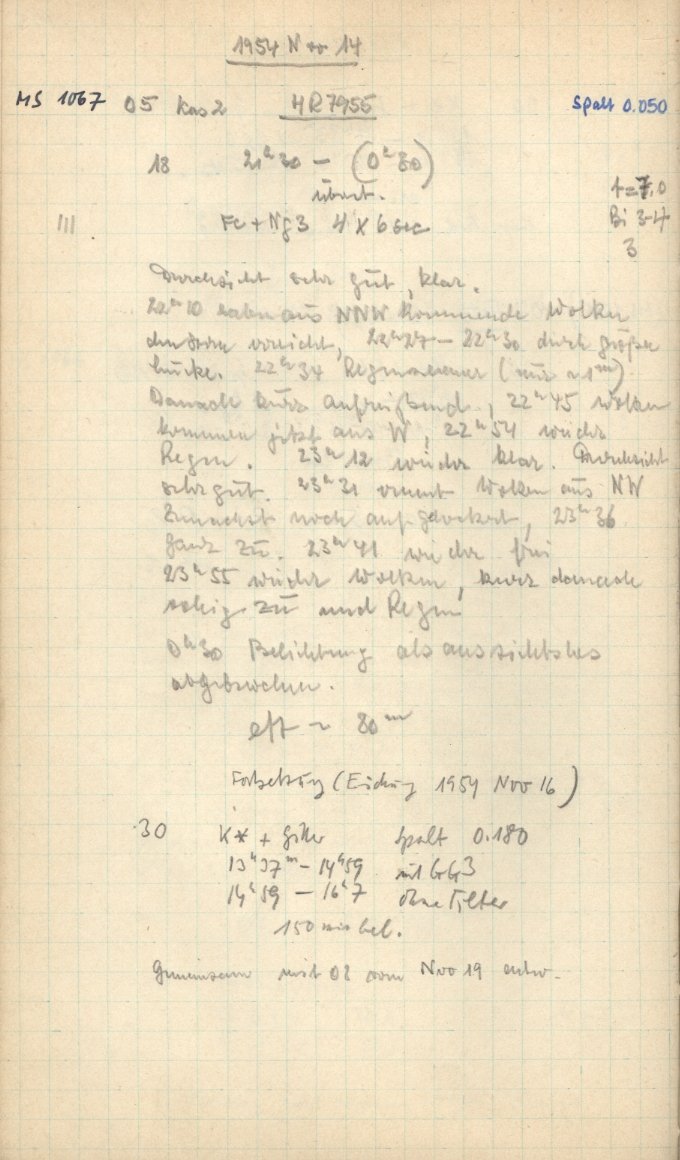 1954 Nov 14
MS 1067 05 Kas 2 HR 7955 Spalt 0.050
18 21h30 – (0h30)
t=7.0
Bi 3-4
3
III Fe + Ng 3 4 x 6 sec
Durchsicht sehr gut, klar.
22h10 aus NNW kommende Wolken
22h27 – 22h30 durch größere
Lücke. 22h34 Regenschauer (nur ~1m)
Danach kurz aufreißend, 22h45 Wolken
kommen jetzt aus W, 22h54 wieder
Regen. 23h12 wieder klar. Durchsicht
sehr gut. 23h31 erneut Wolken aus NW
Zunächst noch aufgelockert, 23h36
ganz zu. 23h41 wieder frei
23h55 wieder Wolken, kurz danach
zu und Regen
0h30 Belichtung als aussichtslos
abgebrochen.
eff ~ 80m
Fortsetzung (Eichung 1954 Nov 16)
30 K* + Gitter Spalt 0.180
13h37m – 14h59 mit GG3
14h59 – 16h7 ohne Filter
150 min bel.
Gemeinsam mit 02 vom Nov 19 entw.